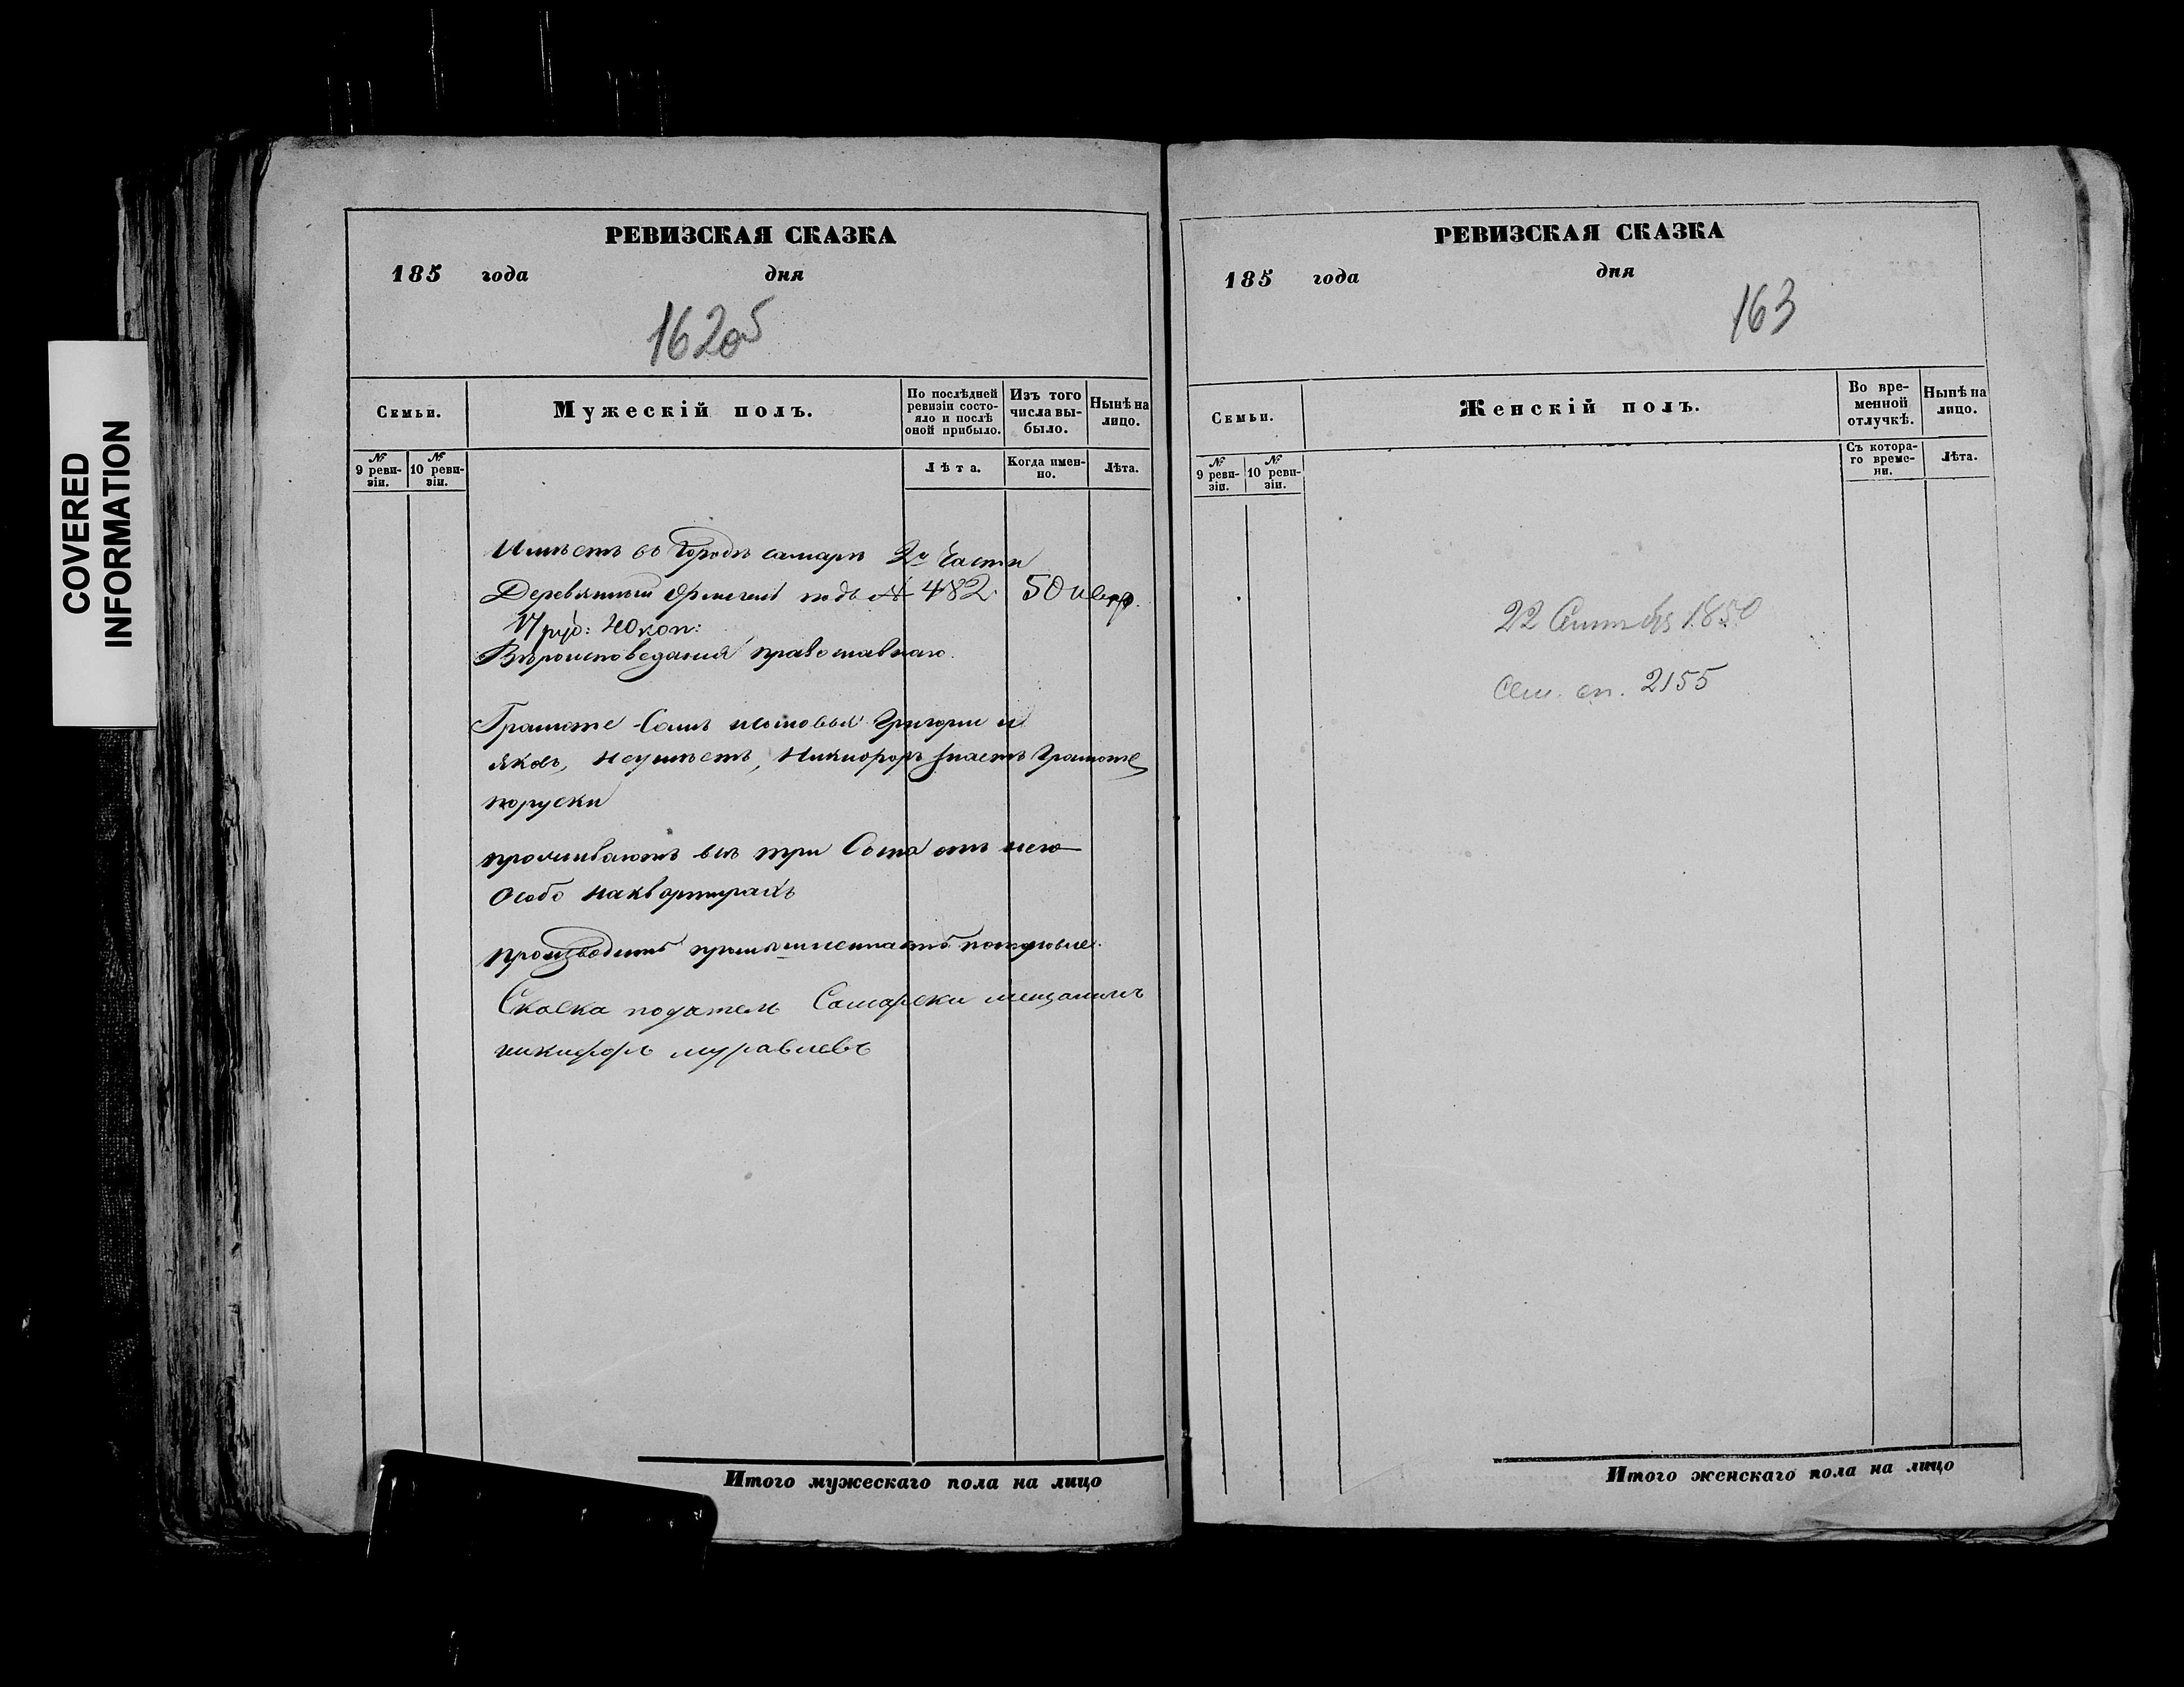 COVERED
INFORMATION
РЕВИЗСКАЯ СКАЗКА
185 года дня
162об
Семьи.
Мужескій полъ.
По послѣдней
ревизіи состо-
яло и послѣ
оной прибыло.
Изъ того
числа вы-
было.
Нынѣ на
лицо.
№
9 реви-
зіи.
№
10 реви-
зіи.
Лѣта.
Когда имен-
но.
Лѣта.
Имѣетъ въ Городѣ самарѣ 2й Части
Деревянный флигель подъ № 482
17 руб: 40 коп:
Вѣроисповедания православнаго.
Грамоте Самъ Григории и
яковъ, неумѣетъ, Никиоръ знаетъ Грамоте
поруски
проживаютъ все три Сына отъ него
Особо наквортирахъ
производитъ промышленность
Скаска податель Самарски мещанинъ
никифоръ муравьевъ
Итого мужескаго пола на лицо
РЕВИЗСКАЯ СКАЗКА
185 года дня
163
Семьи.
Женскій полъ.
Во вре-
менной
отлучкѣ.
Нынѣ на
лицо.
№
9 реви-
зіи.
№
10 реви-
зіи.
Съ котора-
го време-
ни.
Лѣта.
22 Сентябр 1850
Сем. сп. 2155
Итого женскаго пола на лицо